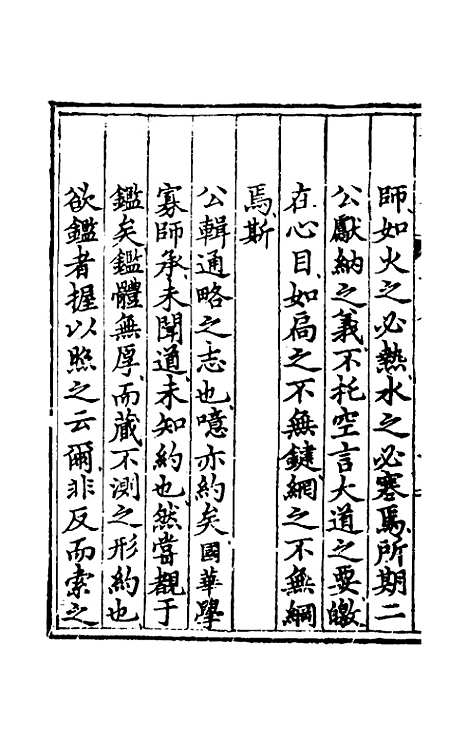 師如火之必熱水之必寒焉所期二
公獻納之義不托空言大道之要皦
在心目如扄之不無鍵網之不無綱
焉斯
公輯通略之志也噫亦約矣國華學
寡師承未聞道未知約也然嘗覩于
鑑矣鑑體無厚而藏不測之形約也
欲鑑者握以照之云爾非反而索之